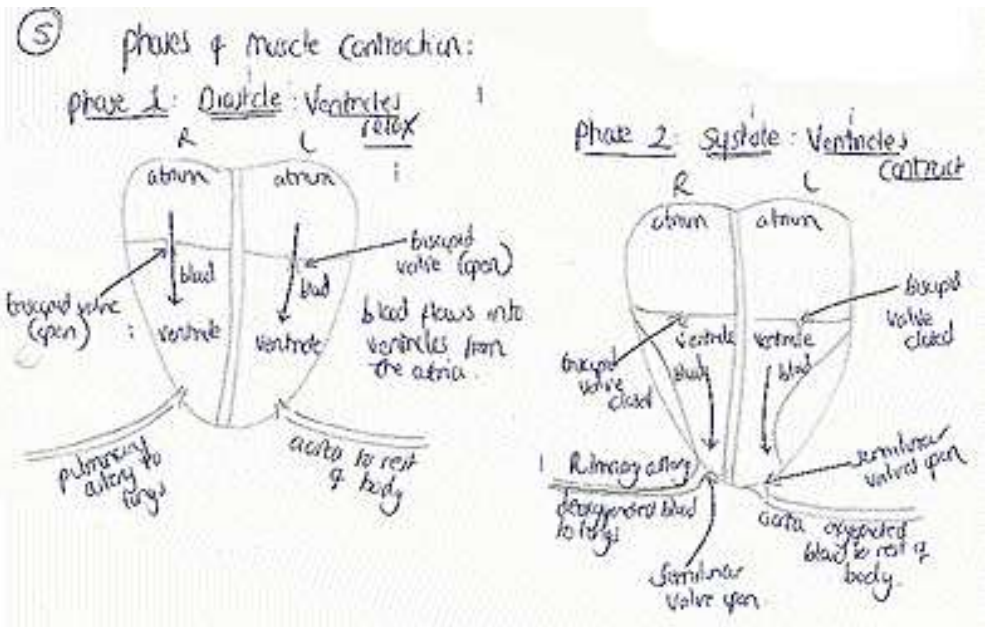 5
Phases of muscle contraction:
Phase 1: Diastole: Ventricles
relax
R L
atrium atrium
biscupid
valve (open)
blood
blood
triscupid valve
(open)
ventricle
ventricle
blood flows into
ventricles from
the atria.
pulmonary
artery to
lungs
aorta to rest
of body
Phase 2: Systole: Ventricles
contract
R L
atrium atrium
biscupid
valve
closed
ventricle ventricle
triscupid
valve
closed
blood
blood
semilunar
valves open
Pulmonary artery
deoxygenated blood
to lungs
aorta oxygenated
blood to rest of
body.
semilunar
valve open.